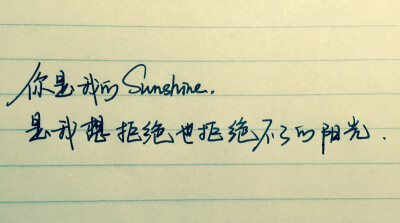 你是我的Sunshine.
是我想拒绝也拒绝不了的阳光.